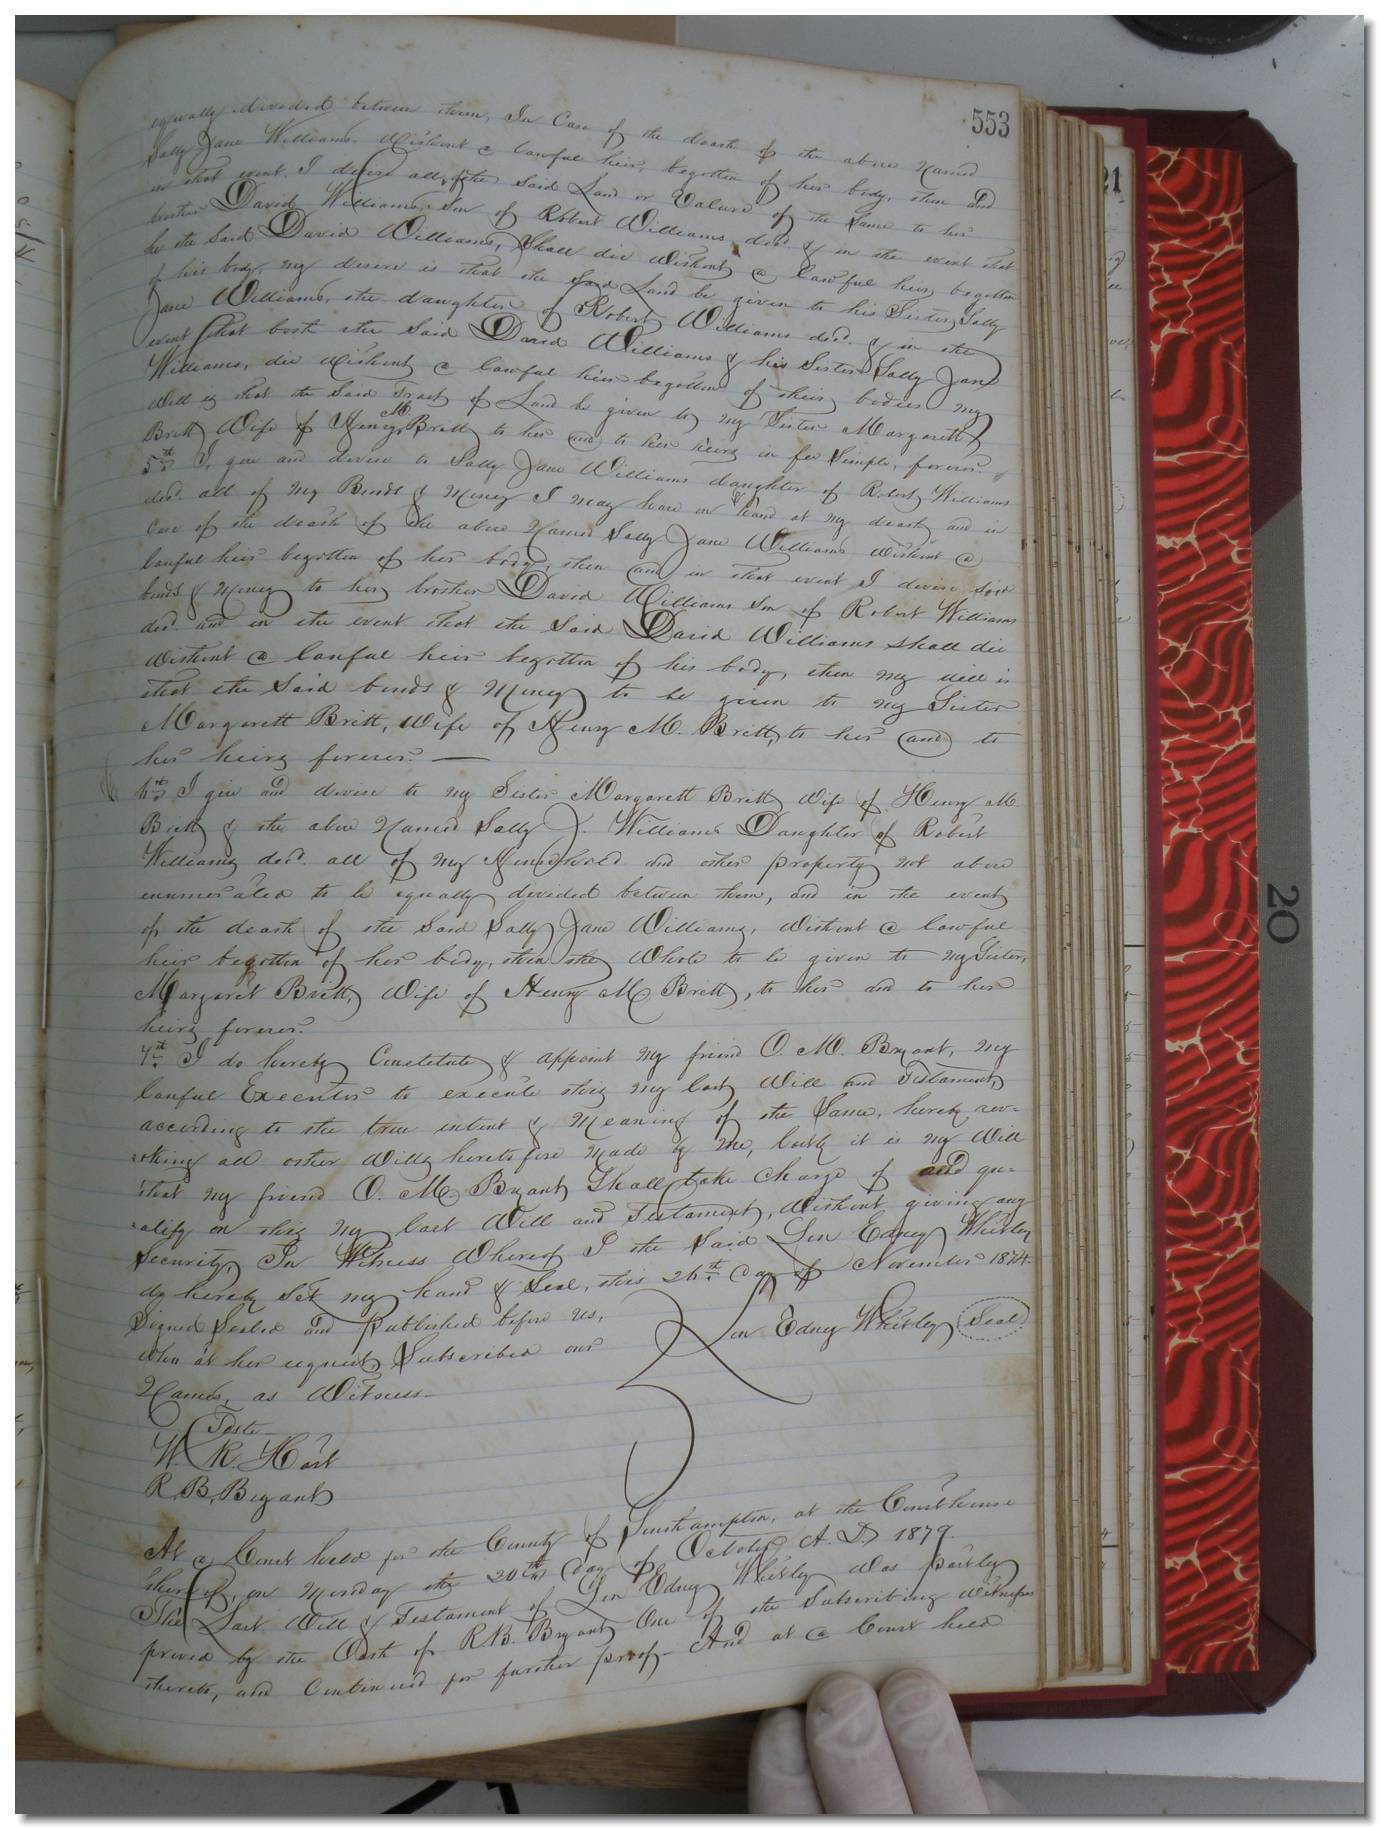 553
equally divided between them, In Case of the death of the above Named
Sally Jane Williams, without a lawful heir, begotten of her body, then and
in that event, I devise all of the said Land or Value of the Same to her
brother David Williams, Son of Robert Williams, decd. & in the event that
he the Said David Williams, Shall die without a lawful heir begotten
of his body, my desire is that the said Land be given to his Sister, Sally
Jane Williams, the daughter of Robert Williams decd. & in the
event that both the Said David Williams & his Sister Sally Jane
Williams, die without a lawful heir begotten of their bodies my
Will is that the Said Tract of Land be given to my Sister Margarett
Britt Wife of Henry M. Britt, to her and to her heirs in fee Simple, forever.
5th. I, give and devise to Sally Jane Williams daughter of Robert Williams
decd. all of my Bonds & Money I may have on hand at my death and in
Case of the death of the above Named Sally Jane Williams without a
lawful heir begotten of her body, then and in that event I devise said
bonds & Money to her brother David Williams Son of Robert Williams
decd. and in the event that the Said David Williams shall die
without a lawful heir begotten of his body, then my will is
that the Said bonds & Money to be given to my Sister
Margarett Britt, Wife of Henry M. Britt, to her and to
her heirs forever.
6th. I give and devise to my Sister Margarett Britt, Wife of Henry M
Britt & the above Named Sally J. Williams Daughter of Robert
Williams decd. all of my Household and other property not above
enumerated to be equally divided between them, and in the event
of the death of the Said Sally Jane Williams, without a lawful
heir begotten of her body, then the Whole to be given to my Sister,
Margaret Britt, Wife of Henry M Britt, to her and to her
heirs forever.
7th. I do hereby Constitute & appoint my friend O. M. Bryant, my
lawful Executor to execute this my last Will and Testament
according to the true intent & Meaning of the Same, hereby rev=
oking all other Wills heretofore made by Me, lastly it is my Will
that my friend O. M. Bryant Shall take charge of and qu=
alify on this my last Will and Testament, Without giving any
Security, In Witness Whereof I the Said Lin Edney Whitley
do hereby Set my hand & Seal, this 26th. Day of November 1874.
Signed Sealed and Published before us,
Lin Edney Whitley (Seal)
who at her request, Subscribed our
Names, as Witness
Teste
W R. Hart
R. B. Bryant
At a Court held for the County of Southampton, at the Courthouse
thereof, on Monday the 20th Day of October A. D. 1879.
The Last Will & Testament of Lin Edney Whitley was partly
proved by the Oath of R. B. Bryant One of the Subscribing witnesses
thereto, and Continued for further proof- And at a Court held
21
20